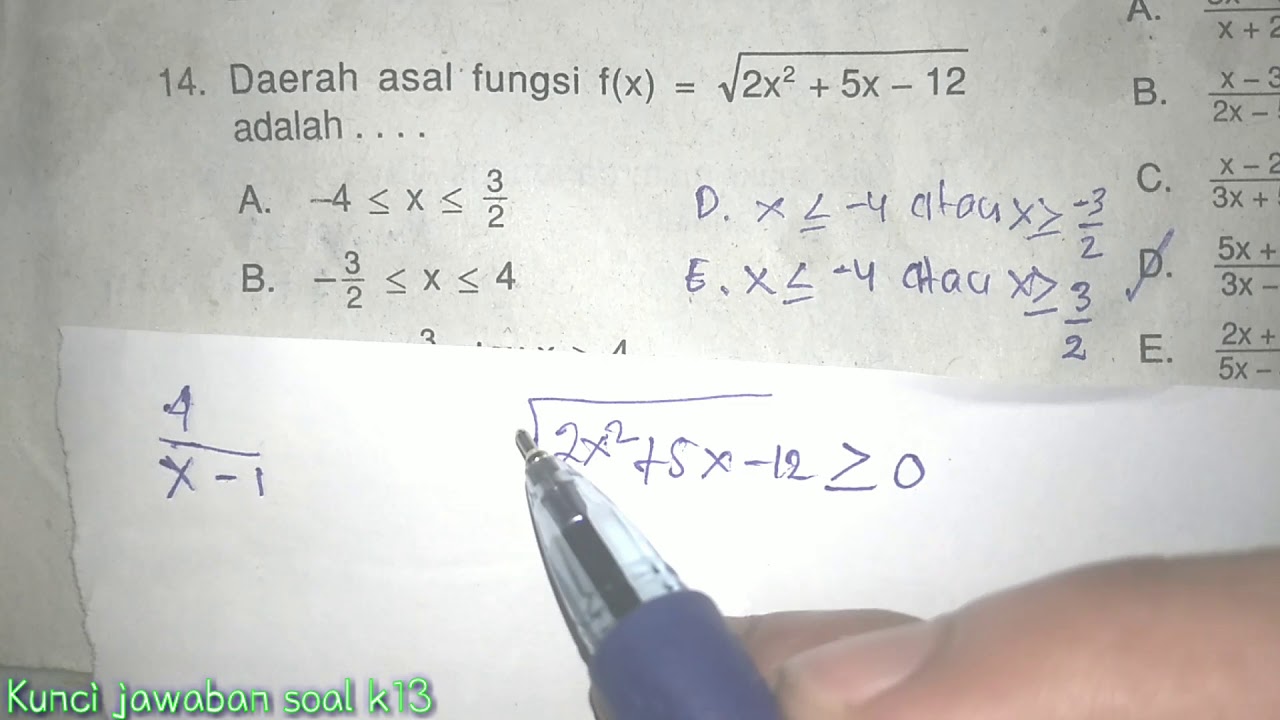 14. Daerah asal fungsi f(x) = √2x² + 5x – 12
adalah . . . .
A. –4 ≤ x ≤ 3/2
B. –3/2 ≤ x ≤ 4
D. x ≤ -4 atau x ≥ -3/2
E. x ≤ -4 atau x ≥ 3/2
A.
x + 2
B. x – 3
2x –
C. x – 2
3x +
D. 5x +
3x –
E. 2x +
5x –
4/x - 1
√2x² + 5x - 12 ≥ 0
Kunci jawaban soal k13